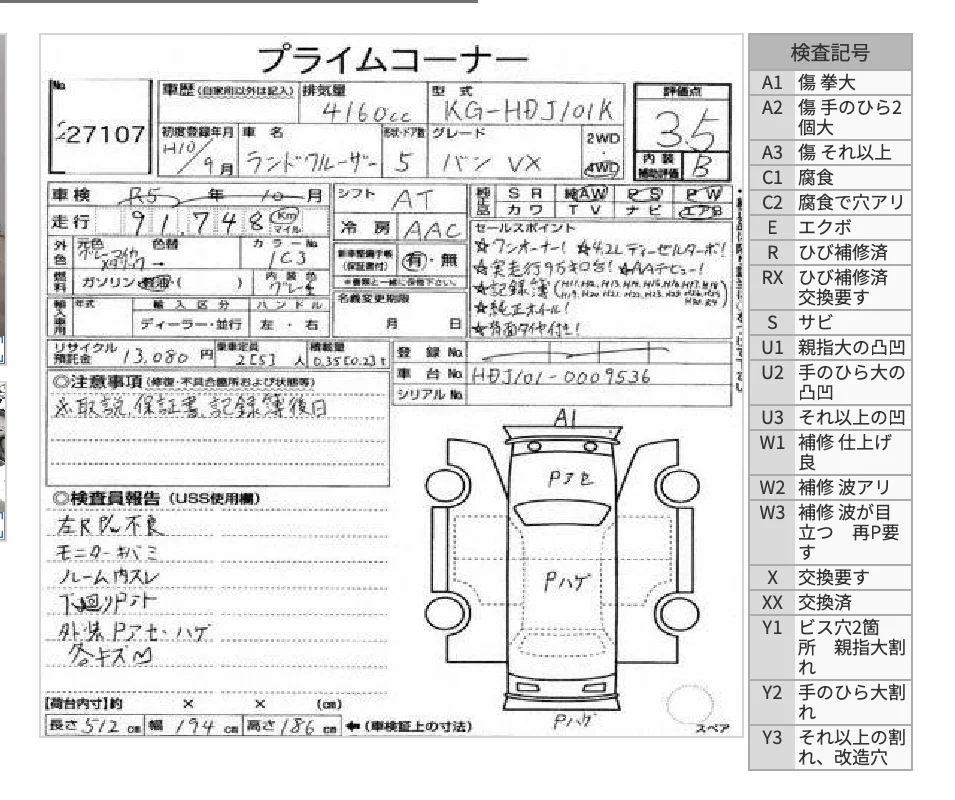 プライムコーナー
No.
27107
車歴 (自家用以外は記入)
排気量
4160cc
型 式
KG-HDJ101K
評価点
3.5
初度登録年月
H10/9月
車 名
ランドクルーザー
形状・ドア数
5
グレード
バン VX
2WD
4WD
内 装
補助評価
B
車 検
R5 年 10 月
シフト
AT
純正品
S R
AW
P S
P W
カ ワ
T V
ナ ビ
エアB
走 行
91,748
Km
マイル
冷 房
AAC
セールスポイント
☆ワンオーナー! ☆4.2Lディーゼルターボ!
☆実走行9万キロ台! ☆AAデビュー!
☆記録簿
☆純正ホイール!
☆背面タイヤ付き!
外色
元色
色替
→
カラーNo.
1C3
新車整備手帳
(保証書付)
有・無
※書類と一緒に保管下さい。
燃料
ガソリン・軽油・( )
内 装 色
グレー
名義変更期限
月 日
輸入車用
年式
輸 入 区 分
ハ ン ド ル
ディーラー・並行
左 ・ 右
リサイクル
預託金
13.080 円
乗車定員
2[5] 人
積載量
0.35[0.2] t
登 録 No.
車 台 No.
HDJ101-0009536
シリアル No.
◎注意事項 (修復・不具合箇所および状態等)
取説、保証書、記録簿後日
◎検査員報告 (USS使用欄)
左R P/W 不良
モニターキバミ
ルーム内スレ
下廻りPアト
外装Pアセ・ハゲ
各キズ凹
A1
Pアセ
Pハゲ
Pハゲ
スペア
【荷台内寸】約 × × (㎝)
長さ 512 ㎝ 幅 194 ㎝ 高さ 186 ㎝ ←(車検証上の寸法)
検査記号
A1 傷 拳大
A2 傷 手のひら2個大
A3 傷 それ以上
C1 腐食
C2 腐食で穴アリ
E エクボ
R ひび補修済
RX ひび補修済 交換要す
S サビ
U1 親指大の凸凹
U2 手のひら大の凸凹
U3 それ以上の凹
W1 補修 仕上げ良
W2 補修 波アリ
W3 補修 波が目立つ 再P要す
X 交換要す
XX 交換済
Y1 ビス穴2箇所 親指大割れ
Y2 手のひら大割れ
Y3 それ以上の割れ、改造穴